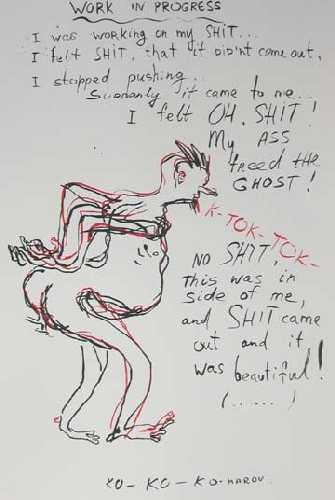 WORK IN PROGRESS
I was working on my SHIT...
I felt SHIT, that it didn't came out,
I stopped pushing..
Suddanly it came to me..
I felt OH, SHIT!
My ASS
freed the
GHOST!
K-TOK-TOK-
NO SHIT,
This was in
side of me,
and SHIT came
out and it
was beautiful!
(......)
KO-KO-KO-MAROV.